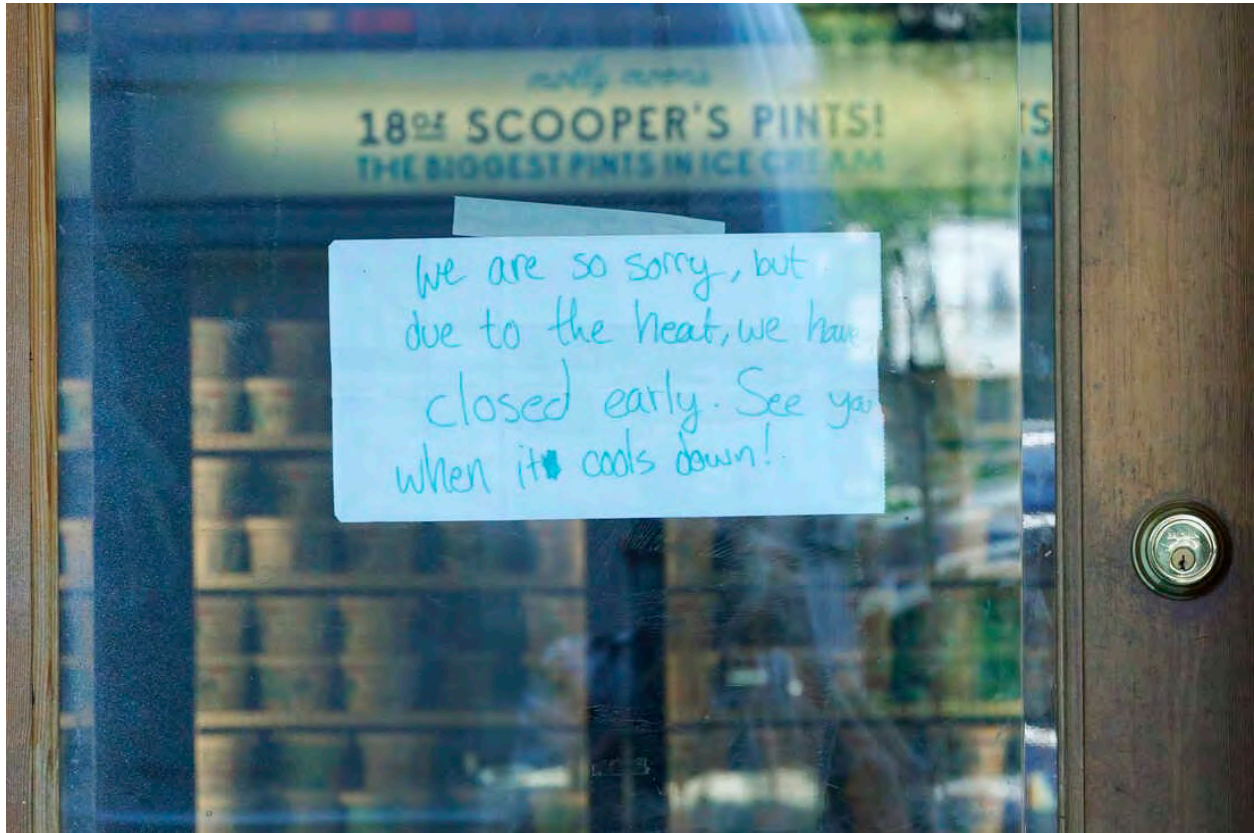 molly moon's
18oz SCOOPER'S PINTS!
THE BIGGEST PINTS IN ICE CREAM
We are so sorry, but
due to the heat, we have
closed early. See you
when it cools down!